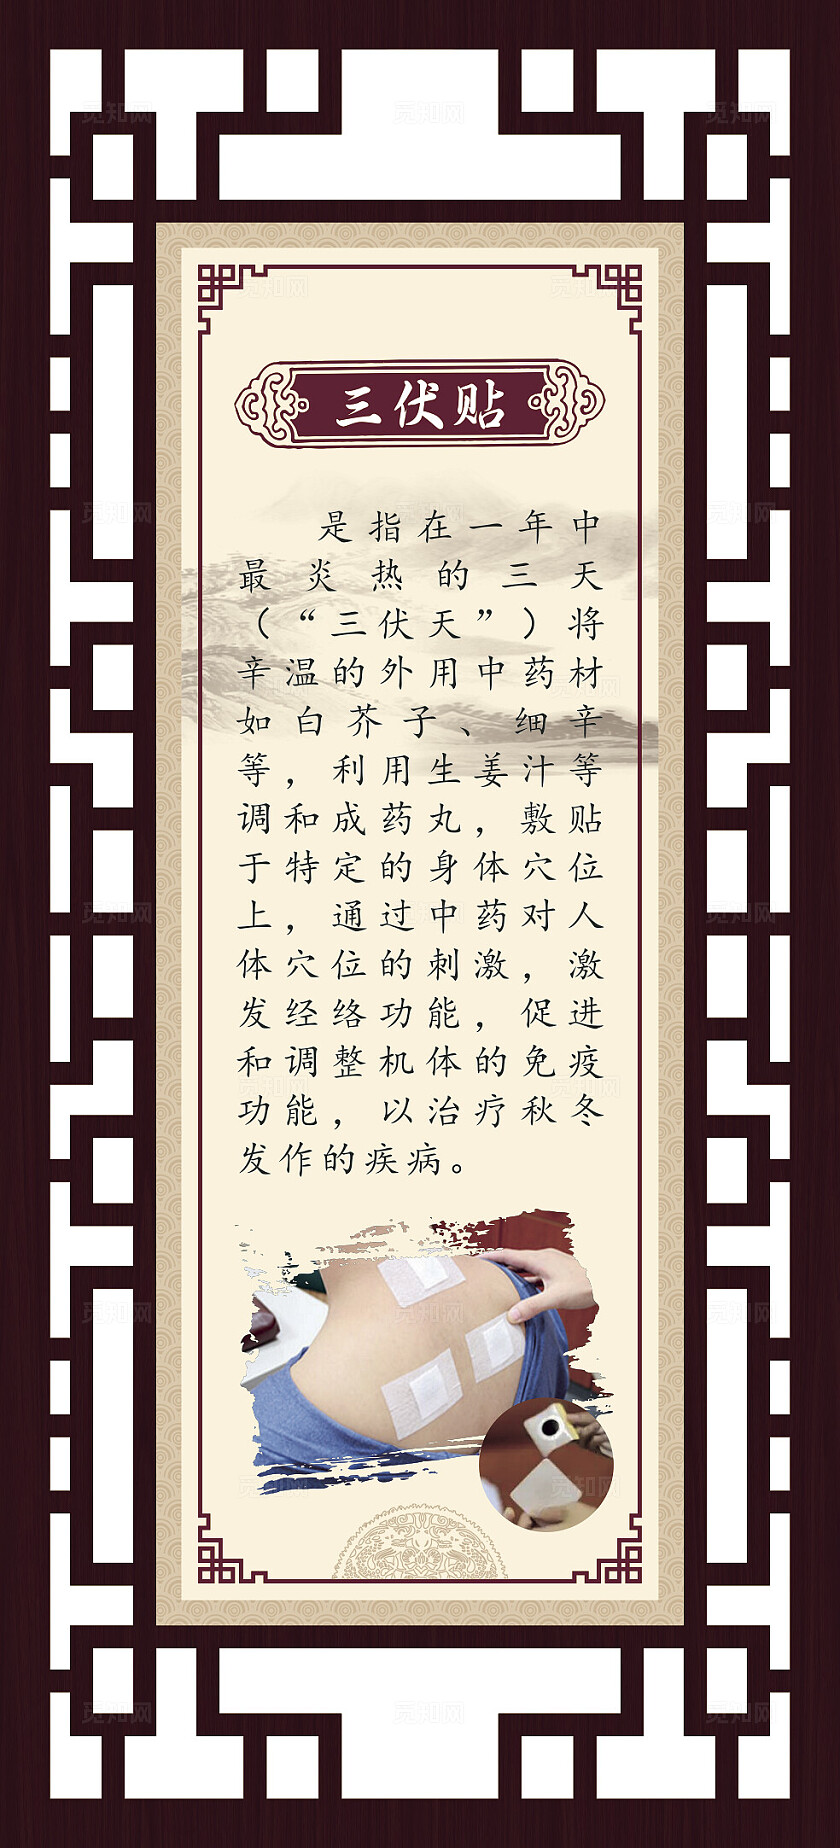 三伏贴
是指在一年中
最炎热的三天
（“三伏天”）将
辛温的外用中药材
如白芥子、细辛
等，利用生姜汁等
调和成药丸，敷贴
于特定的身体穴位
上，通过中药对人
体穴位的刺激，激
发经络功能，促进
和调整机体的免疫
功能，以治疗秋冬
发作的疾病。
觅知网